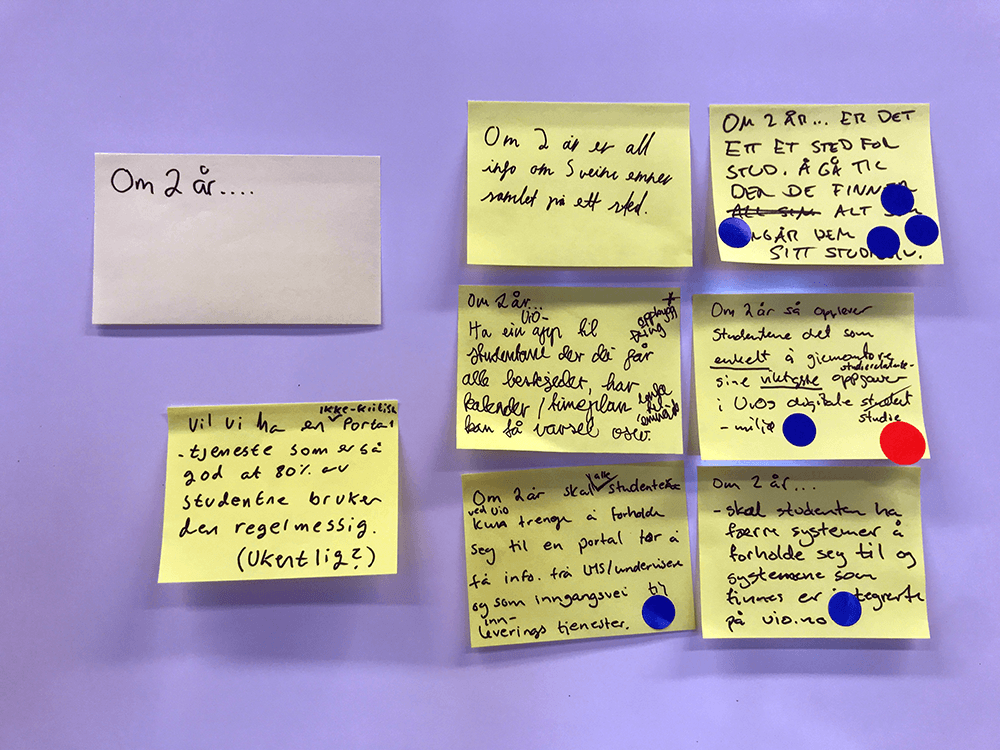 Om 2 år....
Vil vi ha en ikke-kritisk portal
-tjeneste som er så
god at 80% av
studentne bruker
den regelmessig.
(Ukentlig?)
Om 2 år er all
info om
samlet på ett sted.
OM 2 ÅR... ER DET
ETT ET STED FOR
STUD. Å GÅ TIL
DER DE FINNER
ALT SOM
ANGÅR DEM
SITT STUDIELIV.
Om 2 år
UiO-
Ha ein app til
studentane der dei får
alle beskjeder, har
kalender / timeplan
kan få varsel osv.
Om 2 år så opplever
studentene det som
enkelt å
studierelaterte
sine viktigste oppgaver
i UiOs digitale student
studie
- miljø
Om 2 år skal alle studenter
ved UiO
kun trenge å forholde
seg til en portal for å
få info. frå LMS/undervisere
og som inngangsvei til
inn-
leverings tjenester.
Om 2 år...
- skal studenten ha
færre systemer å
forholde seg til og
systemene som
finnes er integrerte
på uio.no